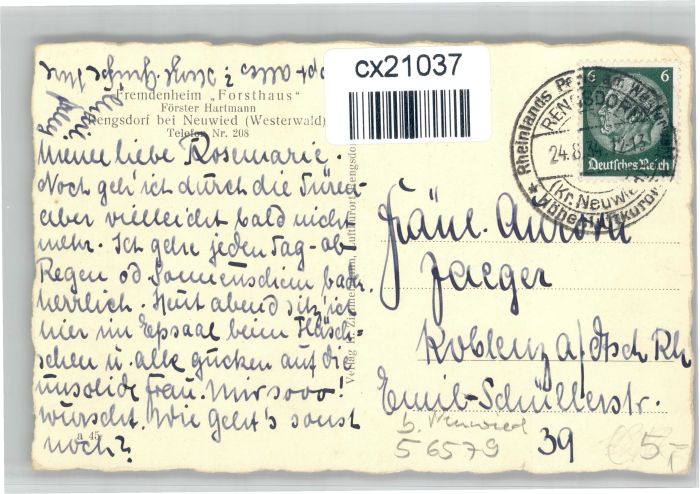 cx21037
Fremdenheim „Forsthaus"
Förster Hartmann
Rengsdorf bei Neuwied (Westerwald)
Telefon Nr. 208
Meine liebe Rosemarie.
Noch geh' ich durch die Türen
aber vielleicht bald nicht
mehr. Ich gehe jeden Tag - ob
Regen od Sonnenschein bad
herrlich. Heut abend sitz' ich
hier im Epsaal beim Fläsch-
schen u. alle gucken auf die
unsolide Frau. Mir sooo!
wurscht. Wie geht's sonst
noch?
a 45
6 6
Deutsches Reich
RENGSDORF
24.8.
(Kr. Neuwied)
Höhenluftkurort
Rheinlands
Fräul. Aurora
Jaeger
Koblenz a/dsch Rh
Emil-Schüllerstr.
39
b. Neuwied
56579
5,-